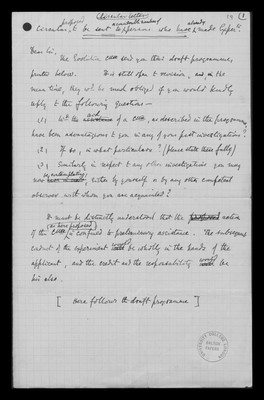 (Circular letter)
Circular, proposed to be sent to persons who have already made exper.ts
Dear Sir,
The Evolution Com send you their draft programme,
printed below. It is still open to revision, and, in the
mean time, they wd be much obliged if you would kindly
reply to the following questions —
(1) Wd the aid of a Com, as described in the programme,
have been advantageous to you in any of your past investigations?
(2) If so, in what particulars? (please state these fully)
(3) Similarly in respect to any other investigations you may
now be contemplating, either by yourself or by any other competent
observer with whom you are acquainted?
It must be distinctly understood that the action
of the Com (as here proposed) is confined to preliminary assistance. The subsequent
conduct of the experiment would be wholly in the hands of the
applicant, and the credit and the responsibility would be
his also.
[ here follows the draft programme ]